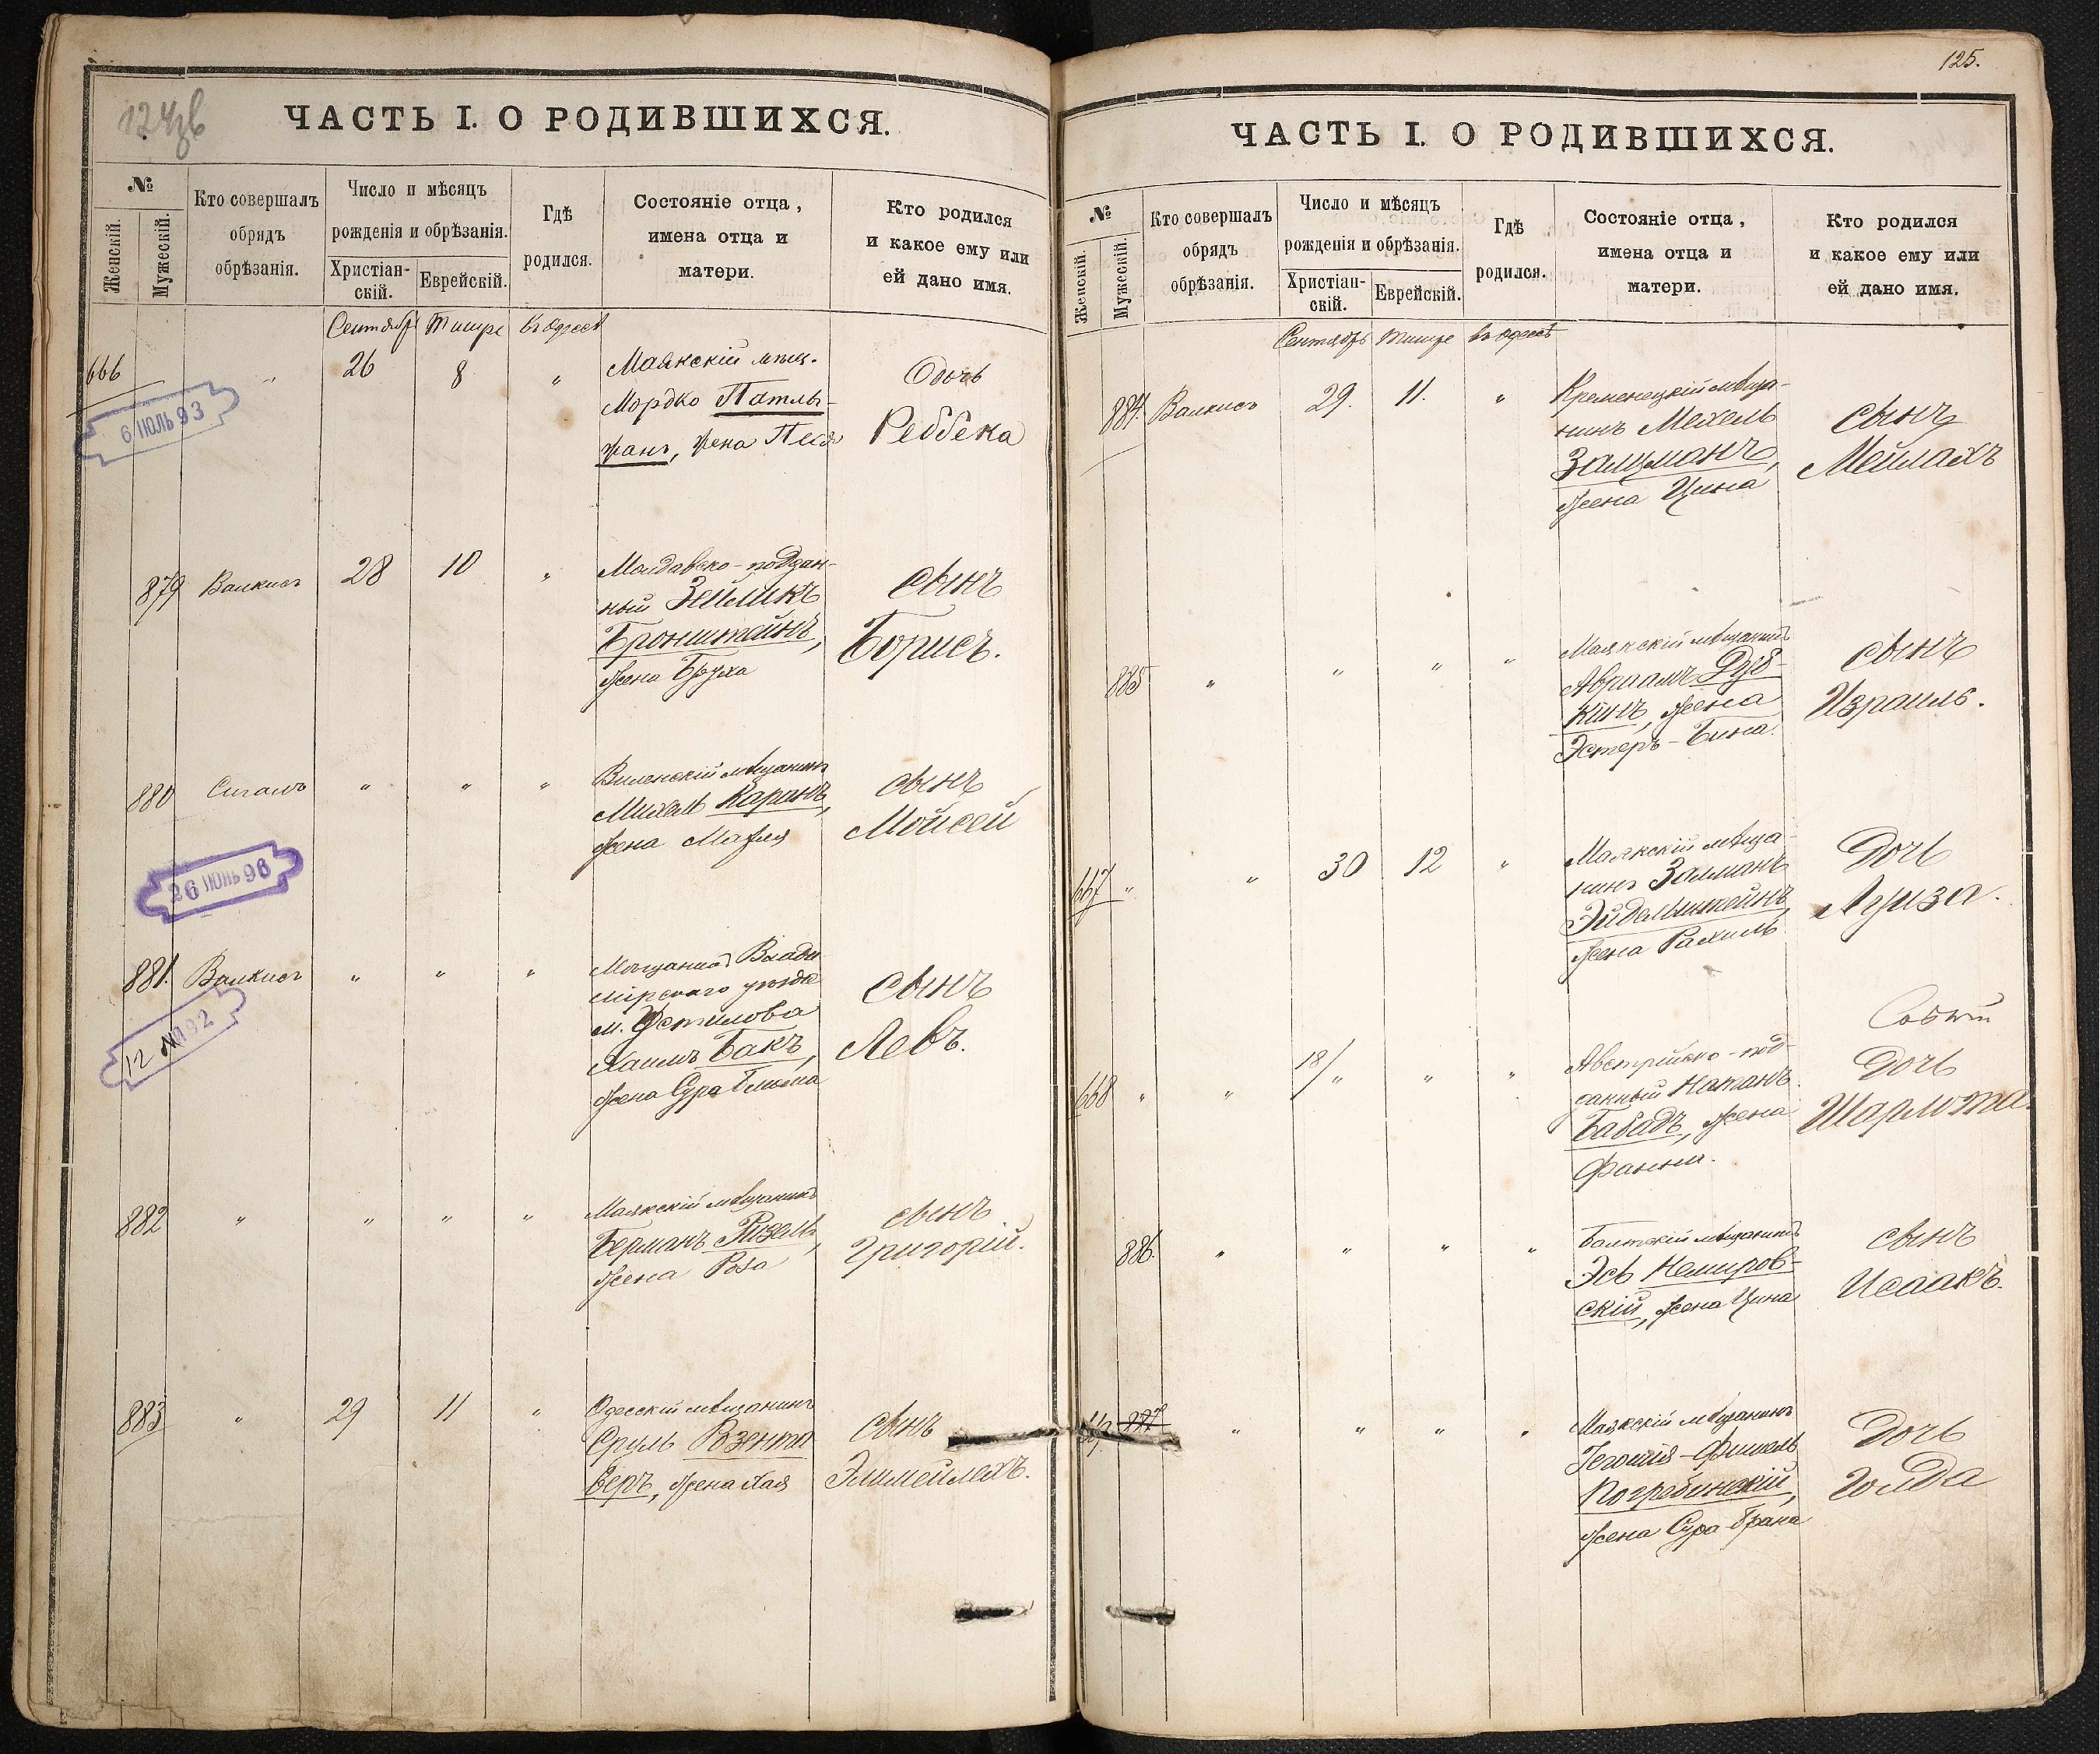 124зв
ЧАСТЬ I. О РОДИВШИХСЯ.
№
Женскій.
Мужескій.
Кто совершалъ
обрядъ
обрѣзанія.
Число и мѣсяцъ
рожденія и обрѣзанія.
Христіан-
скій.
Еврейскій.
Гдѣ
родился.
Состояніе отца,
имена отца и
матери.
Кто родился
и какое ему или
ей дано имя.
Сентябрь Тишре въ Одессѣ
666 „ 26 8 „
Маякскій мѣщ.
Мордко
жена Песя
Дочь
Ребека
6 ІЮЛЬ 93
879 Валкисъ 28 10 „
Молдавско-поддан-
ный Зейликъ
Бронштайнъ,
жена Бруха
сынъ
Борисъ.
880 Сигалъ „ „ „
Виленскій мѣщанинъ
Михель Каринъ,
жена Малля
сынъ
Мойсей
26 ІЮНЬ 96
881. Валкисъ „ „ „
Мѣщанинъ Влади-
мірскаго уѣзда
м. Устилова
Хаимъ Бакъ,
жена Сура Блюма
сынъ
Левъ.
12 92
882 „ „ „ „
Маякскій мѣщанинъ
Берманъ Ризель,
жена Роза
сынъ
Григорій.
883 „ 29 11 „
Одесскій мѣщанинъ
Сруль Взента
беръ, жена Хая
сынъ
Элимейлехъ.
125.
ЧАСТЬ I. О РОДИВШИХСЯ.
№
Женскій.
Мужескій.
Кто совершалъ
обрядъ
обрѣзанія.
Число и мѣсяцъ
рожденія и обрѣзанія.
Христіан-
скій.
Еврейскій.
Гдѣ
родился.
Состояніе отца,
имена отца и
матери.
Кто родился
и какое ему или
ей дано имя.
Сентябрь Тишре въ Одессѣ
884. Валкисъ 29. 11. „
Кременецкій мѣща-
нинъ Мехель
Залцманъ,
жена Цина
сынъ
Мейлахъ
885 „ „ „ „
Маякскій мѣщанинъ
Авраамъ Дуб-
кинъ, жена
Эстеръ-Бина.
сынъ
Израиль.
667 „ „ 30 12 „
Маякскій мѣща-
нинъ Залманъ
Эйдельштейнъ,
жена Рахиль
Дочь
Луиза.
668 „ „ 18/„ „ „
Австрійско-под-
данный Натанъ
Бабадъ, жена
Фанни.
Дочь
Шарлота.
886. „ „ „ „
Балтскій мѣщанинъ
Эсь Немиров-
скій, жена Цина
сынъ
Исаакъ.
887 „ „ „ „
Маякскій мѣщанинъ
Гегошія-Фишель
Погребинскій,
жена Сура-Брана
Дочь
Голда